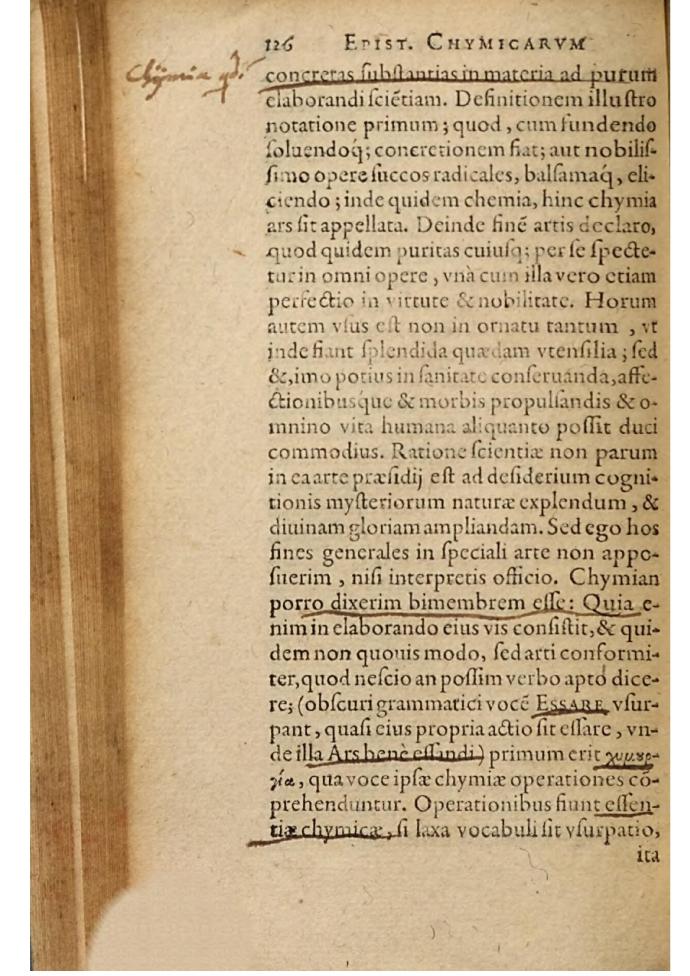 126 EPIST. CHYMICARVM
Chÿmia qd.
concretas ſubſtantias in materia ad purum
elaborandi ſciẽtiam. Definitionem illuſtro
notatione primum; quod, cum fundendo
ſoluendoq́; concretionem fiat; aut nobiliſ-
ſimo opere ſuccos radicales, balſamaq́, eli-
ciendo; inde quidem chemia, hinc chymia
ars ſit appellata. Deinde finẽ artis declaro,
quod quidem puritas cuiuſq; per ſe ſpecte-
tur in omni opere, vnà cum illa vero etiam
perfectio in virtute & nobilitate. Horum
autem vſus eſt non in ornatu tantum, vt
inde fiant ſplendida quædam vtenſilia; ſed
&, imo potius in ſanitate conſeruanda, affe-
ctionibusque & morbis propulſandis & o-
mnino vita humana aliquanto poſſit duci
commodius. Ratione ſcientiæ non parum
in ea arte præſidij eſt ad deſiderium cogni-
tionis myſteriorum naturæ explendum, &
diuinam gloriam ampliandam. Sed ego hos
fines generales in ſpeciali arte non appo-
ſuerim, niſi interpretis officio. Chymian
porro dixerim bimembrem eſſe: Quia e-
nim in elaborando eius vis conſiſtit, & qui-
dem non quouis modo, ſed arti conformi-
ter, quod neſcio an poſſim verbo apto dice-
re; (obſcuri grammatici vocẽ ESSARE vſur-
pant, quaſi eius propria actio ſit eſſare, vn-
de illa Ars benè eſſandi) primum erit χυμȣρ-
γία, qua voce ipſæ chymiæ operationes cō-
prehenduntur. Operationibus fiunt eſſen-
tiæ chymicæ, ſi laxa vocabuli ſit vſurpatio,
ita